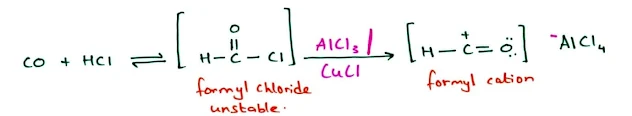 CO + HCl ⇌ [H-C(=O)-Cl] AlCl3 / CuCl → [H-C⁺=Ö:] ⁻AlCl4
formyl chloride
unstable.
formyl cation